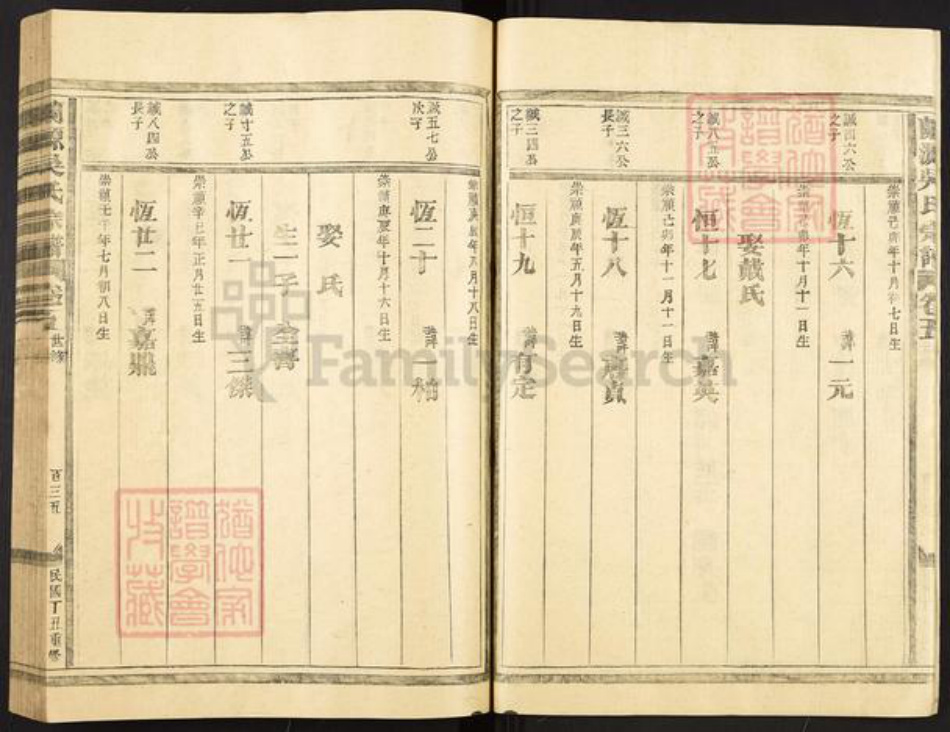 崇禎己卯年十月初七日生
誠四六公
之子
恆十六 諱一元
崇禎己卯年十月十一日生
娶戴氏
誠八五公
之子
恒十七 諱嘉英
崇禎己卯年十一月十一日生
誠三六公
長子
恆十八 諱
崇禎庚辰年五月十九日生
誠三四公
之子
恒十九 諱有定
崇禎庚辰年八月十八日生
誠五七公
次子
恆二十 諱一
崇禎庚辰年十月十六日生
娶 氏
生一子
誠寸五公
之子
恆廿一 諱三傑
崇禎辛巳年正月廿五日生
誠八四公
長子
恆廿二 諱嘉
崇禎壬午年七月初八日生
吳氏宗譜
世條
百三五
民國丁丑重修
譜學會
收藏
FamilySearch